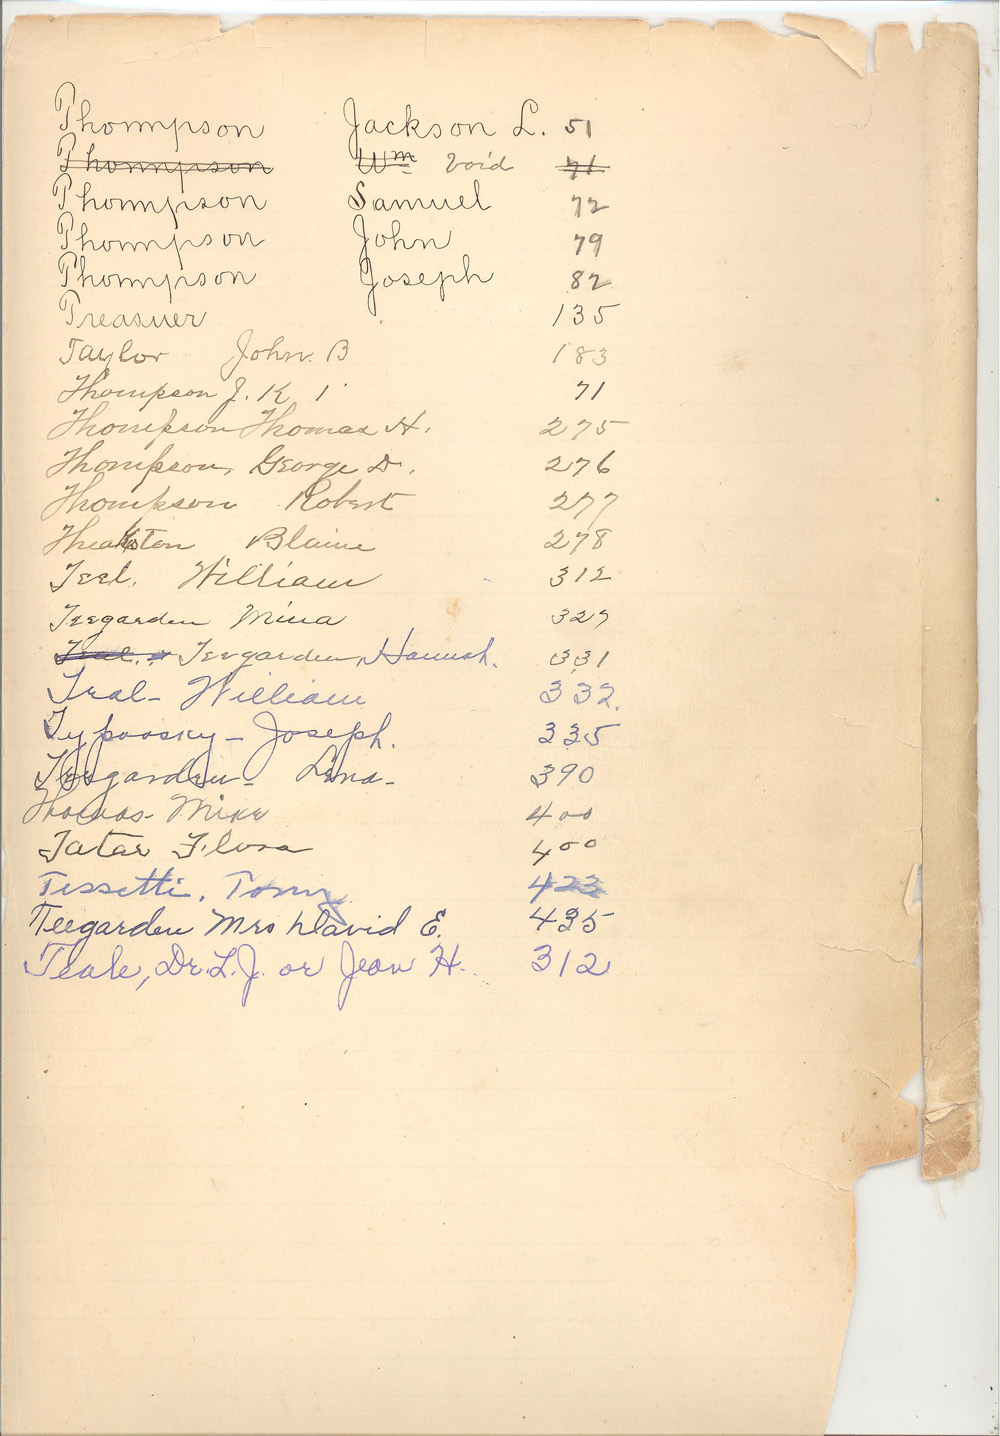 Thompson Jackson L. 51
Thompson Wm void 71
Thompson Samuel 72
Thompson John 79
Thompson Joseph 82
Treasuer 135
Taylor John. B 183
Thompson J. K 71
Thompson Thomas H. 275
Thompson, George D. 276
Thompson Robert 277
Theakston Blaine 278
Teel. William 312
Teegarden Mina 327
Teegarden, Hannah. 331
Teal- William 332.
Typovsky - Joseph. 335
Teegarden - Lena- 390
Thomas- Mike 400
Tatar Flora 400
Tissetti, Tony 423
Teegarden Mrs David E. 435
Teale, Dr. L. J. or Jean H. 312